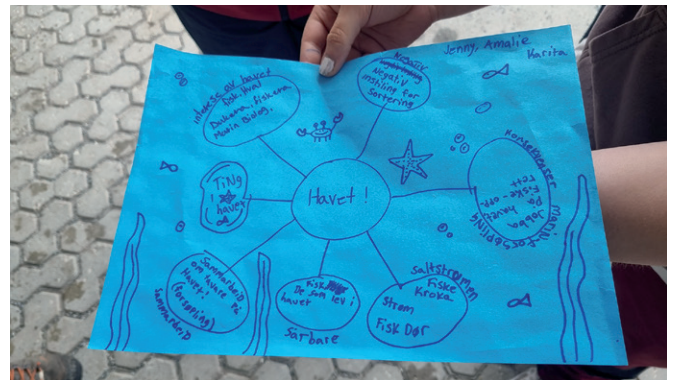 Jenny, Amalie
Karita
Interesse av havet
Dok. Hval
Dukkena, Fiskena
Marin Biolog.
Negativ
Negativ
instiling for
Sortering
Havet!
TiNg
i
havet
Konsekvenser marin forsøpling
Jobba
på havet
Fiske-opp
rett
Sammarbeid
om tavare på
Havet!
(Forsøpling)
Sammarbeid
Fisk
De som lev i
havet
Sårbare
Saltstraumen
Fiske
Kroka
Strøm
Fisk Dør